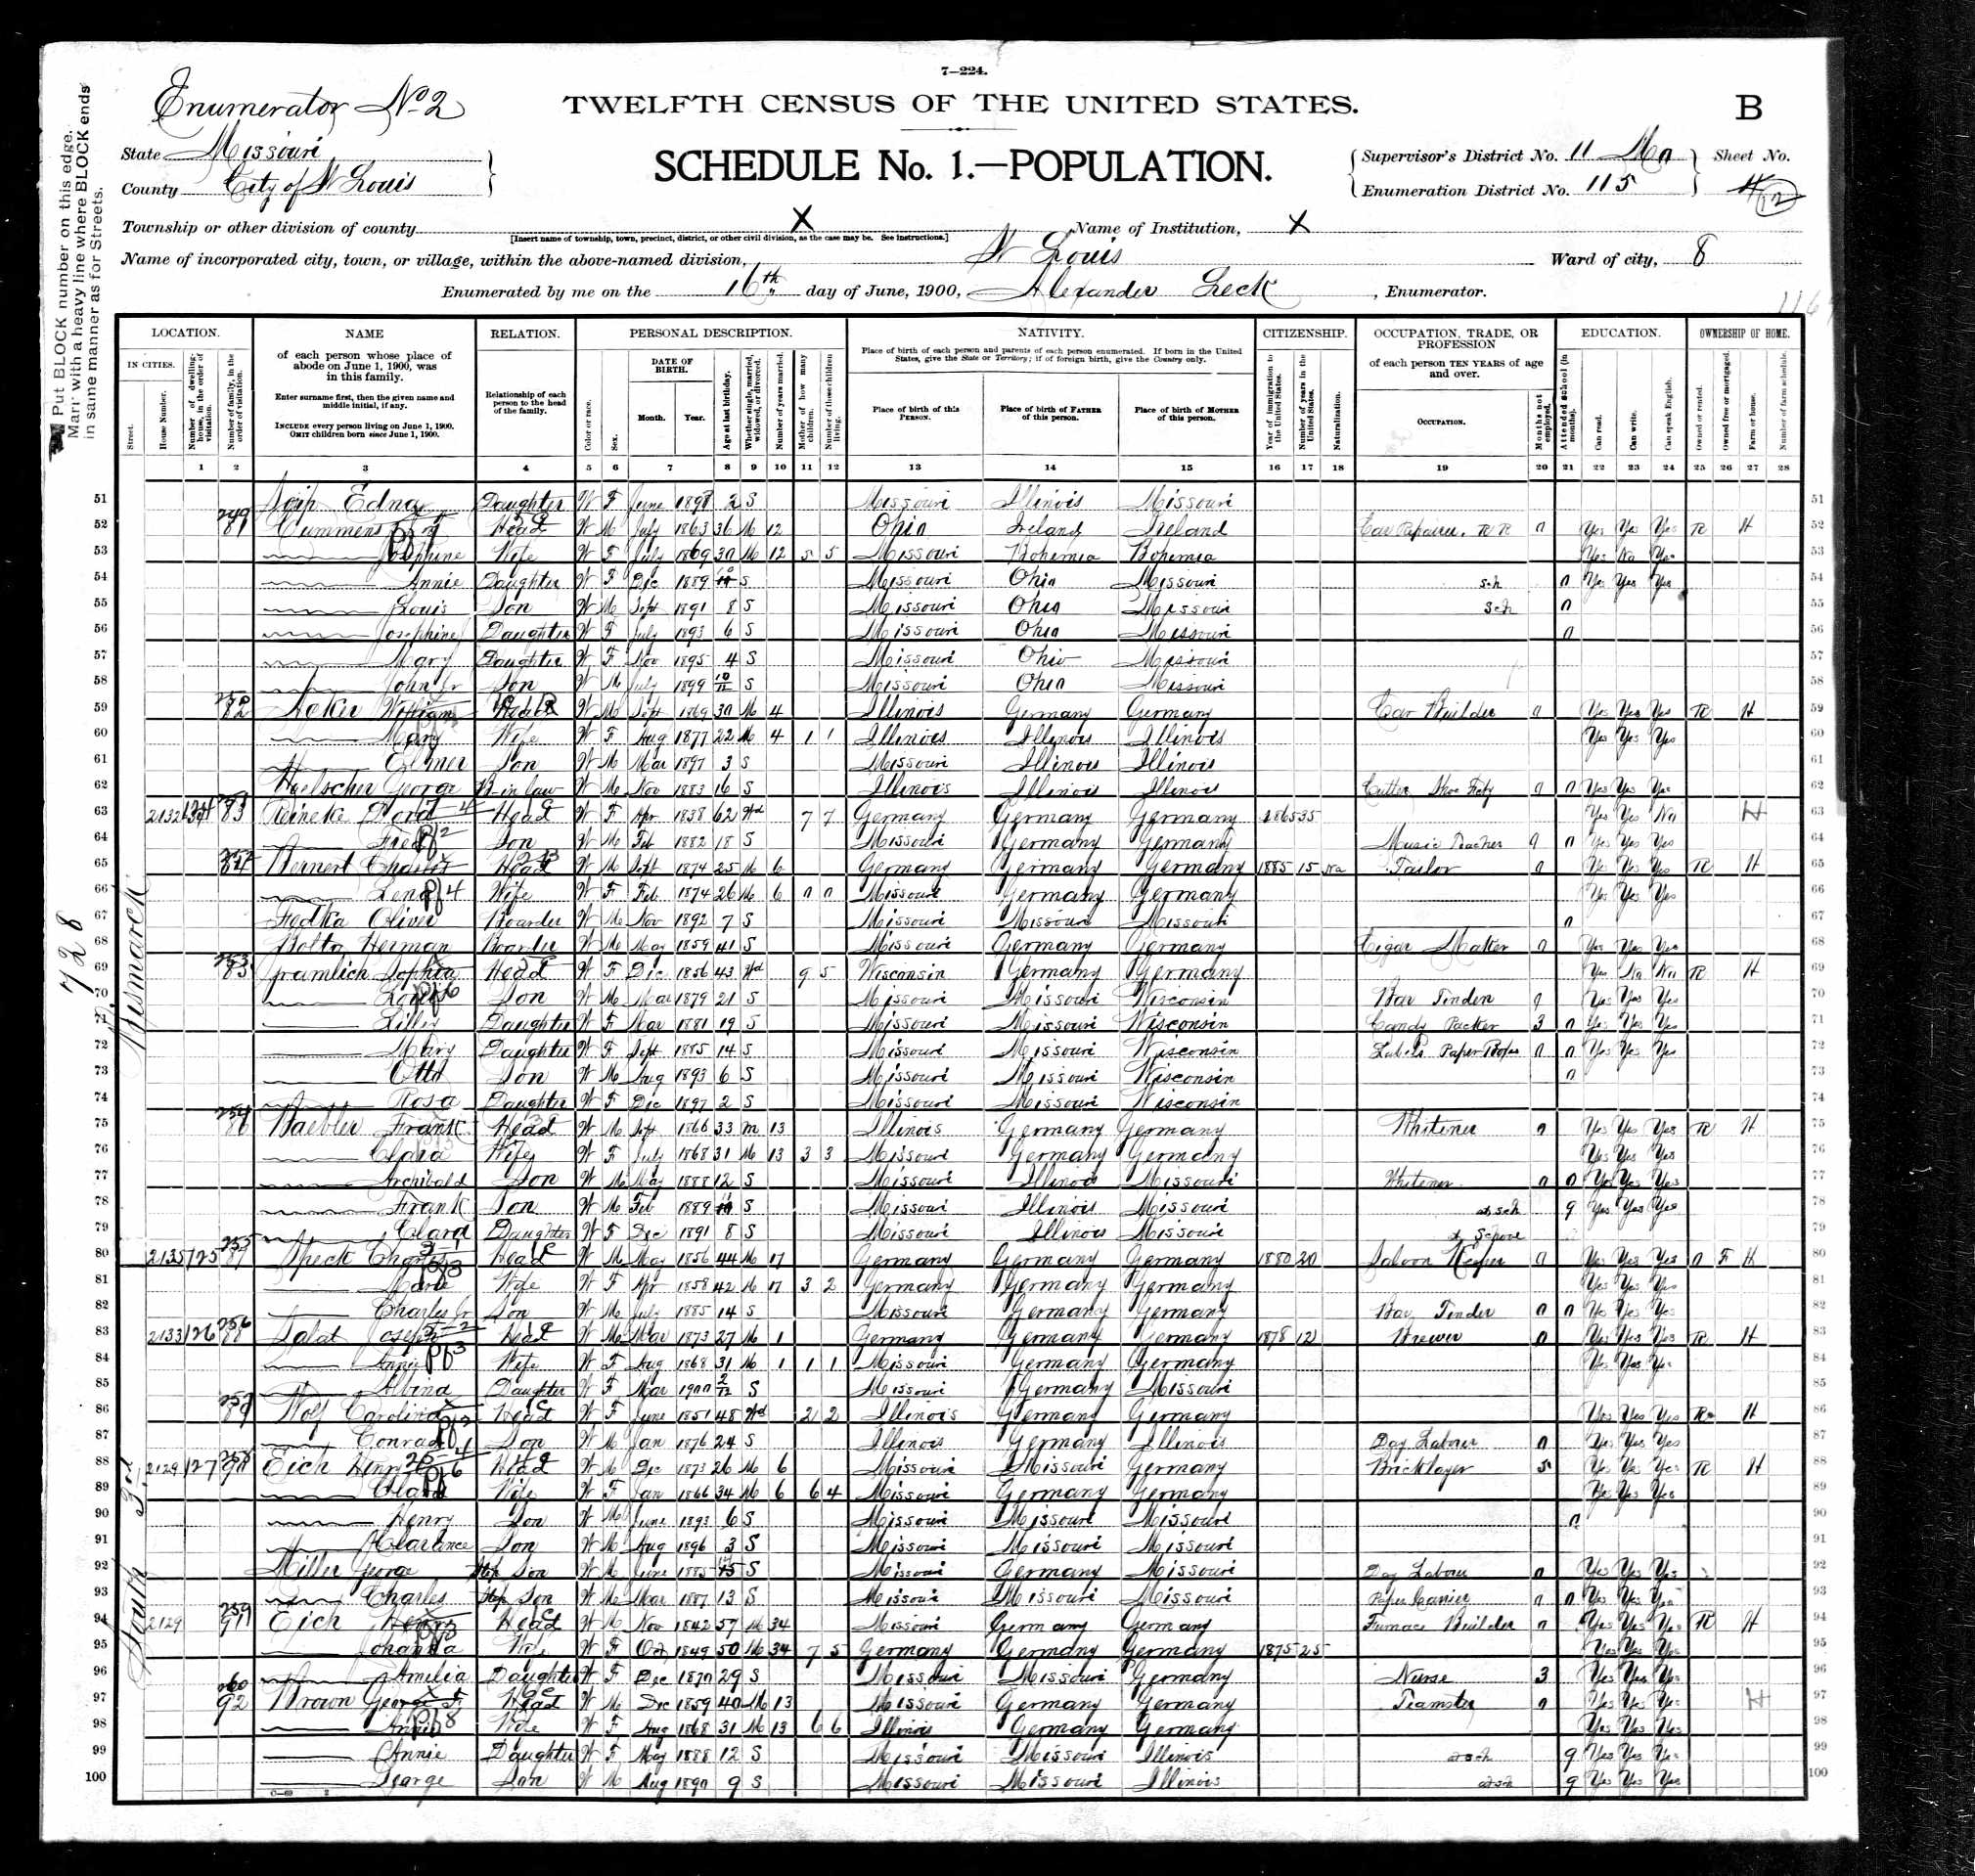 7—224.
Enumerator No 2
TWELFTH CENSUS OF THE UNITED STATES.
B
State Missouri
County City of St Louis
SCHEDULE No. 1.—POPULATION.
Supervisor's District No. 11 Mo
Enumeration District No. 115
Sheet No.
12
Township or other division of county X
[Insert name of township, town, precinct, district, or other civil division, as the case may be. See instructions.]
Name of Institution, X
Name of incorporated city, town, or village, within the above-named division, St Louis
Ward of city, 8
Enumerated by me on the 16th day of June, 1900, Alexander Leck, Enumerator.
Put BLOCK number on this edge.
Mark with a heavy line where BLOCK ends
in same manner as for Streets.
728
Bismarck
South 3rd
LOCATION. NAME RELATION. PERSONAL DESCRIPTION. NATIVITY. CITIZENSHIP. OCCUPATION, TRADE, OR PROFESSION EDUCATION. OWNERSHIP OF HOME.
IN CITIES.
Street.
House Number.
Number of dwelling-house, in the order of visitation.
Number of family, in the order of visitation.
of each person whose place of abode on June 1, 1900, was in this family.
Enter surname first, then the given name and middle initial, if any.
INCLUDE every person living on June 1, 1900.
OMIT children born since June 1, 1900.
Relationship of each person to the head of the family.
Color or race.
Sex.
DATE OF BIRTH.
Month. Year.
Age at last birthday.
Whether single, married, widowed, or divorced.
Number of years married.
Mother of how many children.
Number of these children living.
Place of birth of each person and parents of each person enumerated. If born in the United States, give the State or Territory; if of foreign birth, give the Country only.
Place of birth of this PERSON.
Place of birth of FATHER of this person.
Place of birth of MOTHER of this person.
Year of immigration to the United States.
Number of years in the United States.
Naturalization.
of each person TEN YEARS of age and over.
OCCUPATION.
Months not employed.
Attended school (in months).
Can read.
Can write.
Can speak English.
Owned or rented.
Owned free or mortgaged.
Farm or house.
Number of farm schedule.
1 2 3 4 5 6 7 8 9 10 11 12 13 14 15 16 17 18 19 20 21 22 23 24 25 26 27 28
51 Edna Daughter W F June 1898 2 S Missouri Illinois Missouri 51
52 249 81 Cummens Head W M July 1863 36 M 12 Ohio Ireland Ireland Car Repairer. RR 0 Yes Yes Yes R H 52
53 Josephine Wife W F July 1869 30 M 12 5 5 Missouri Bohemia Bohemia Yes No Yes 53
54 Annie Daughter W F Dec 1889 10 S Missouri Ohio Missouri sch 0 Yes Yes Yes 54
55 Louis Son W M Sept 1891 8 S Missouri Ohio Missouri sch 0 55
56 Josephine Daughter W F July 1893 6 S Missouri Ohio Missouri 0 56
57 Mary Daughter W F Nov 1895 4 S Missouri Ohio Missouri 57
58 John Jr Son W M July 1899 10/12 S Missouri Ohio Missouri 58
59 250 82 William Head W M Sept 1869 30 M 4 Illinois Germany Germany Car Builder 0 Yes Yes Yes R H 59
60 Mary Wife W F Aug 1877 22 M 4 1 1 Illinois Illinois Illinois Yes Yes Yes 60
61 Elmer Son W M Mar 1897 3 S Missouri Illinois Illinois 61
62 Haelscher George B-in law W M Nov 1883 16 S Illinois Illinois Illinois Cutter Shoe Facty 0 0 Yes Yes Yes 62
63 2132 83 Reineke Dora Head W F Apr 1838 62 Wd 7 7 Germany Germany Germany 1865 35 Yes Yes No H 63
64 Fred Son W M Feb 1882 18 S Missouri Germany Germany Music Teacher 9 0 Yes Yes Yes 64
65 252 84 Charles Head W M Sept 1874 25 M 6 Germany Germany Germany 1885 15 Na Tailor 0 Yes Yes Yes R H 65
66 Lena Wife W F Feb 1874 26 M 6 0 0 Missouri Germany Germany Yes Yes Yes 66
67 Fedtka Oliver Boarder W M Nov 1892 7 S Missouri Missouri Missouri 0 67
68 Bolto Herman Boarder W M May 1859 41 S Missouri Germany Germany Cigar Maker 0 Yes Yes Yes 68
69 253 85 Gramlich Sophia Head W F Dec 1856 43 Wd 9 5 Wisconsin Germany Germany Yes No No R H 69
70 Louis Son W M Mar 1879 21 S Missouri Missouri Wisconsin Bar Tender 9 Yes Yes Yes 70
71 Lilly Daughter W F Mar 1881 19 S Missouri Missouri Wisconsin Candy Packer 3 0 Yes Yes Yes 71
72 Mary Daughter W F Sept 1885 14 S Missouri Missouri Wisconsin Labels Paper Boxes 0 0 Yes Yes Yes 72
73 Otto Son W M Aug 1893 6 S Missouri Missouri Wisconsin 0 73
74 Rosa Daughter W F Dec 1897 2 S Missouri Missouri Wisconsin 74
75 254 86 Waebler Frank Head W M Sept 1866 33 M 13 Illinois Germany Germany Whitener 0 Yes Yes Yes R H 75
76 Clara Wife W F July 1868 31 M 13 3 3 Missouri Germany Germany Yes Yes Yes 76
77 Archibald Son W M May 1888 12 S Missouri Illinois Missouri Whitener 0 0 Yes Yes Yes 77
78 Frank Son W M Feb 1889 11 S Missouri Illinois Missouri at sch 9 Yes Yes Yes 78
79 Clara Daughter W F Dec 1891 8 S Missouri Illinois Missouri 79
80 2135 125 255 87 Speck Charles Head W M May 1856 44 M 17 Germany Germany Germany 1880 20 Saloon Keeper 0 Yes Yes Yes O F H 80
81 Marie Wife W F Apr 1858 42 M 17 3 2 Germany Germany Germany Yes Yes Yes 81
82 Charles Jr Son W M July 1885 14 S Missouri Germany Germany Bar Tender 0 0 Yes Yes Yes 82
83 2133 126 256 88 Salat Joseph Head W M Mar 1873 27 M 1 Germany Germany Germany 1878 12 Brewer 0 Yes Yes Yes R H 83
84 Annie Wife W F Aug 1868 31 M 1 1 1 Missouri Germany Germany Yes Yes Yes 84
85 Albina Daughter W F Mar 1900 2/12 S Missouri Germany Missouri 85
86 257 89 Wolf Carolina Head W F June 1851 48 Wd 2 2 Illinois Germany Germany Yes Yes Yes R H 86
87 Conrad Son W M Jan 1876 24 S Illinois Germany Illinois Day Laborer 0 Yes Yes Yes 87
88 2129 127 258 90 Eich Henry Head W M Dec 1873 26 M 6 Missouri Missouri Germany Bricklayer 5 Yes Yes Yes R H 88
89 Clara Wife W F Jan 1866 34 M 6 6 4 Missouri Germany Germany Yes Yes Yes 89
90 Henry Son W M June 1893 6 S Missouri Missouri Missouri 0 90
91 Clarence Son W M Aug 1896 3 S Missouri Missouri Missouri 91
92 Miller George Step Son W M June 1885 S Missouri Germany Missouri Day Laborer 0 Yes Yes Yes 92
93 Charles Step Son W M Mar 1887 13 S Missouri Missouri Missouri Paper Carrier 0 0 Yes Yes Yes 93
94 2129 259 91 Eich Henry Head W M Nov 1842 57 M 34 Missouri Germany Germany Furnace Builder 0 Yes Yes Yes R H 94
95 Johanna Wife W F Oct 1849 50 M 34 7 5 Germany Germany Germany 1875 25 Yes Yes Yes 95
96 Amelia Daughter W F Dec 1870 29 S Missouri Missouri Germany Nurse 3 Yes Yes Yes 96
97 260 92 Brown George Head W M Dec 1859 40 M 13 Missouri Germany Germany Teamster 0 Yes Yes Yes H 97
98 Annie Wife W F Aug 1868 31 M 13 6 6 Illinois Germany Germany Yes Yes Yes 98
99 Annie Daughter W F May 1888 12 S Missouri Missouri Illinois at sch 9 Yes Yes Yes 99
100 George Son W M Aug 1890 9 S Missouri Missouri Illinois at sch 9 Yes Yes Yes 100